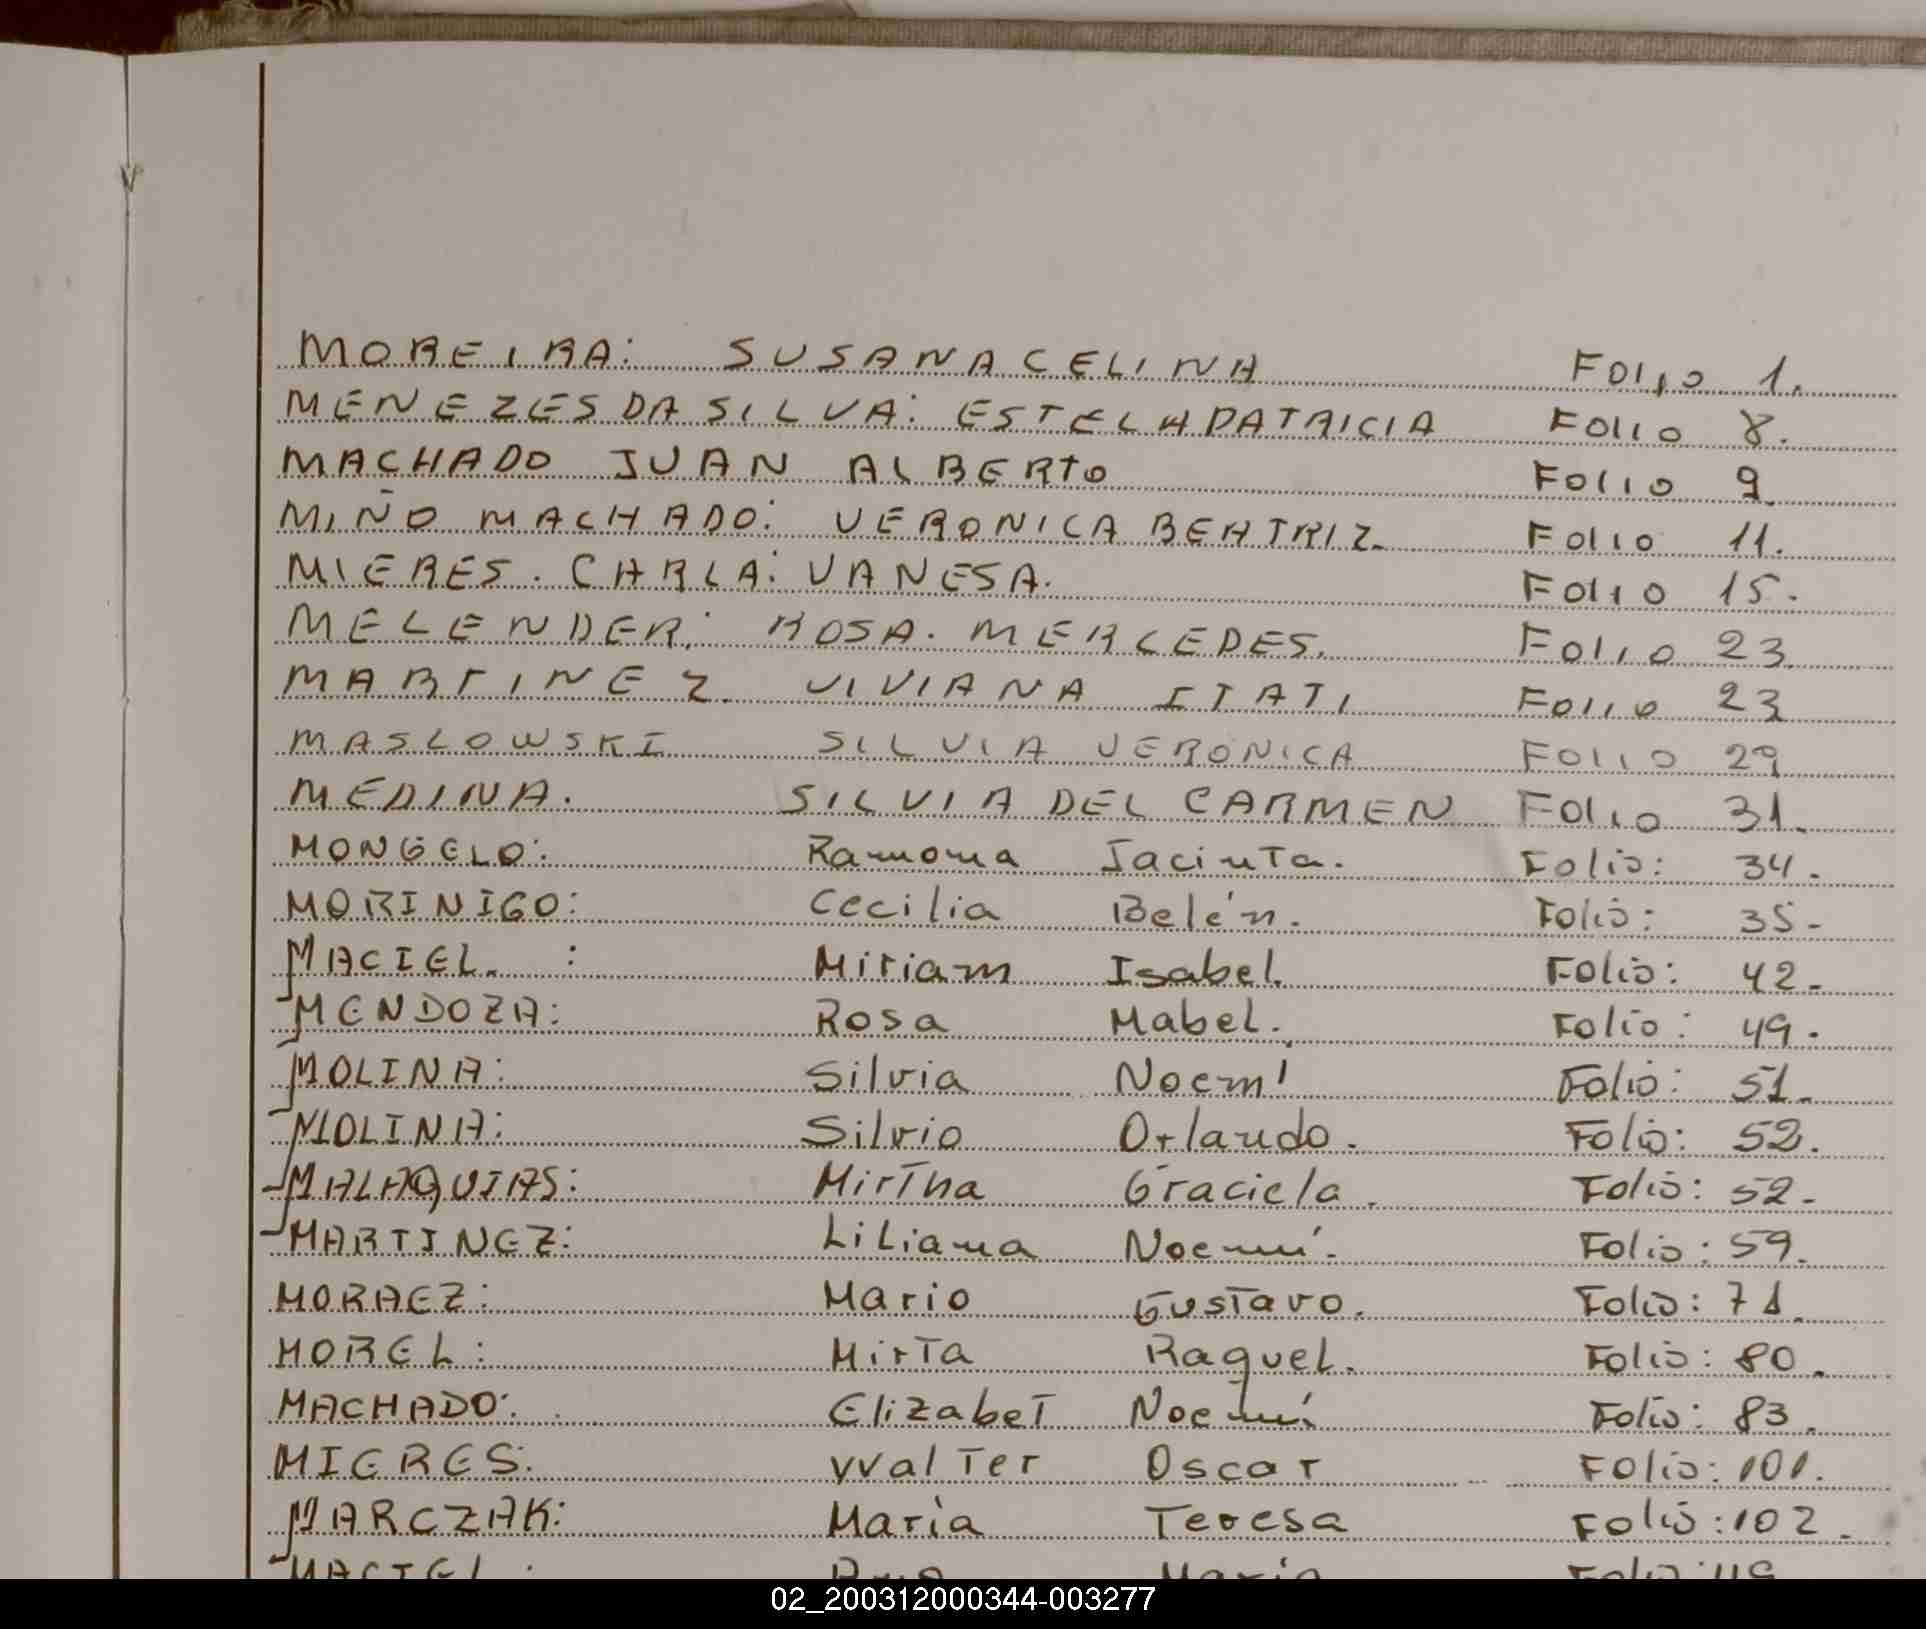 MOREIRA: SUSANA CELINA Folio 1.
MENEZES DA SILVA: ESTELA PATRICIA Folio 8.
MACHADO JUAN ALBERTO Folio 9
MIÑO MACHADO: VERONICA BEATRIZ. Folio 11.
MIERES. CARLA: VANESA. Folio 15.
MELENDER: ROSA. MERCEDES. Folio 23.
MARTINEZ. VIVIANA ITATI Folio 23
MASLOWSKI SILVIA VERONICA Folio 29
MEDINA. SILVIA DEL CARMEN Folio 31.
MONGELO: Ramona Jacinta. Folio: 34.
MORINIGO: Cecilia Belén. Folio: 35-
MACIEL. : Miriam Isabel. Folio: 42-
MENDOZA: Rosa Mabel. Folio: 49.
MOLINA: Silvia Noemí Folio: 51.
MOLINA: Silvio Orlando. Folio: 52.
MALAQUIAS: Mirtha Graciela. Folio: 52-
MARTINEZ: Liliana Noemí. Folio: 59.
MORAEZ: Mario Gustavo. Folio: 71.
MOREL: Mirta Raquel. Folio: 80.
MACHADO: Elizabet Noemí. Folio: 83.
MIERES: Walter Oscar Folio: 101.
MARCZAK: María Teresa Folio: 102.
MACIEL: María Folio:
02_200312000344-003277